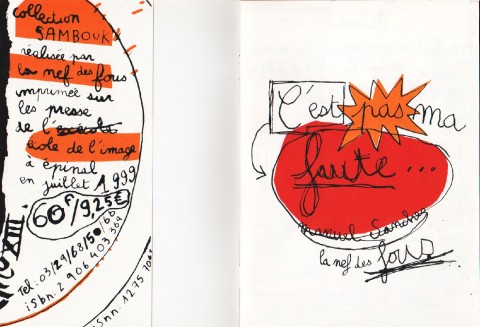 collection
SAMBOUK
réalisée par
la nef des fous
imprimée sur
les presse
de l'
école de l'image
à épinal
en juillet 1999
60F/9,25€
XIII.
Tel: 03/29/68/50/66
isbn: 2 906 403 369
isnn: 1275
C'est pas ma
faute...
manuel Sanchez
la nef des fous